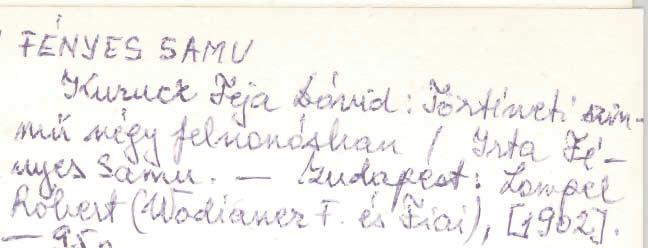 FÉNYES SAMU
Kurucz Feja Dávid: Történeti szin-
mű négy felvonásban / Irta Fé-
nyes Samu. — Budapest: Lampel
Róbert (Wodianer F. és Fiai), [1902].
— 95 p